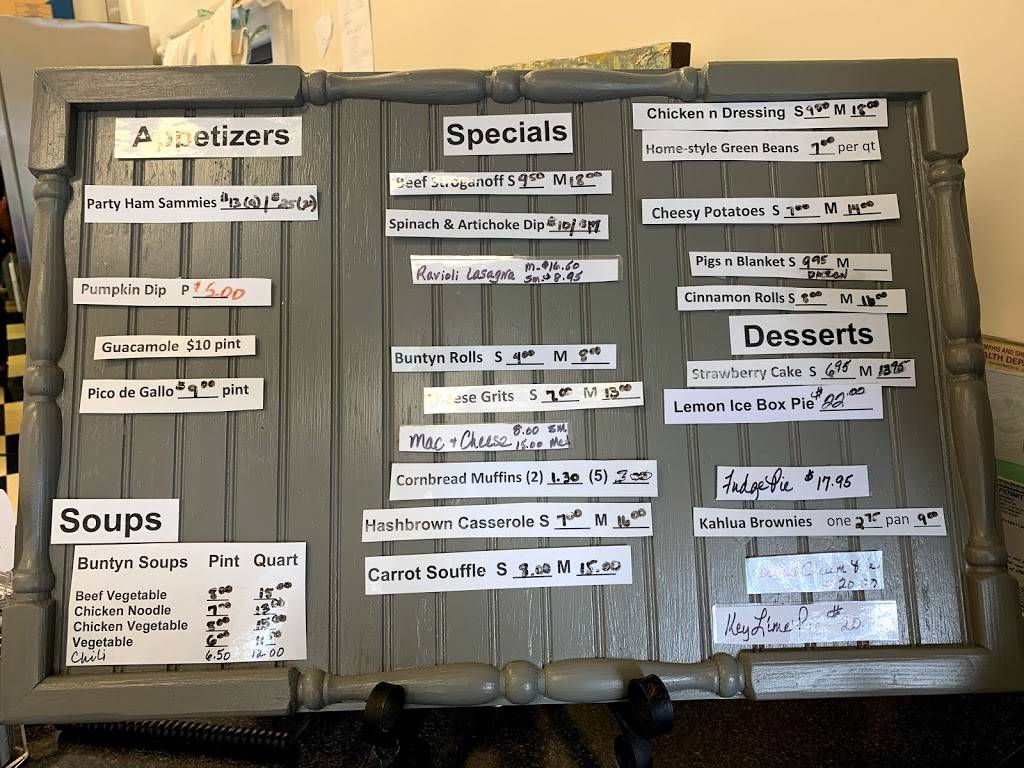 Appetizers
Party Ham Sammies
Pumpkin Dip P $5.00
Guacamole $10 pint
Pico de Gallo $9.00 pint
Soups
Buntyn Soups Pint Quart
Beef Vegetable 8.00 15.00
Chicken Noodle 7.00
Chicken Vegetable 8.00 15.00
Vegetable 6.00
Chili 6.50 12.00
Specials
Beef Stroganoff S 9.50 M 18.00
Spinach & Artichoke Dip
Ravioli Lasagna M - $16.50
Sm. $8.95
Buntyn Rolls S 4.00 M 8.00
Cheese Grits S 7.00 M 13.00
Mac + Cheese 8.00 SM
15.00 Med
Cornbread Muffins (2) 1.30 (5) 3.00
Hashbrown Casserole S 7.00 M 16.00
Carrot Souffle S 8.00 M 15.00
Chicken n Dressing S 9.00 M 18.00
Home-style Green Beans 7.00 per qt
Cheesy Potatoes S 7.00 M 14.00
Pigs n Blanket S 9.95 M
Dozen
Cinnamon Rolls S 8.00 M 16.00
Desserts
Strawberry Cake S 6.95 M 13.95
Lemon Ice Box Pie $22.00
Fudge Pie $17.95
Kahlua Brownies one 2.75 pan 9.00
20.00
Key Lime $20